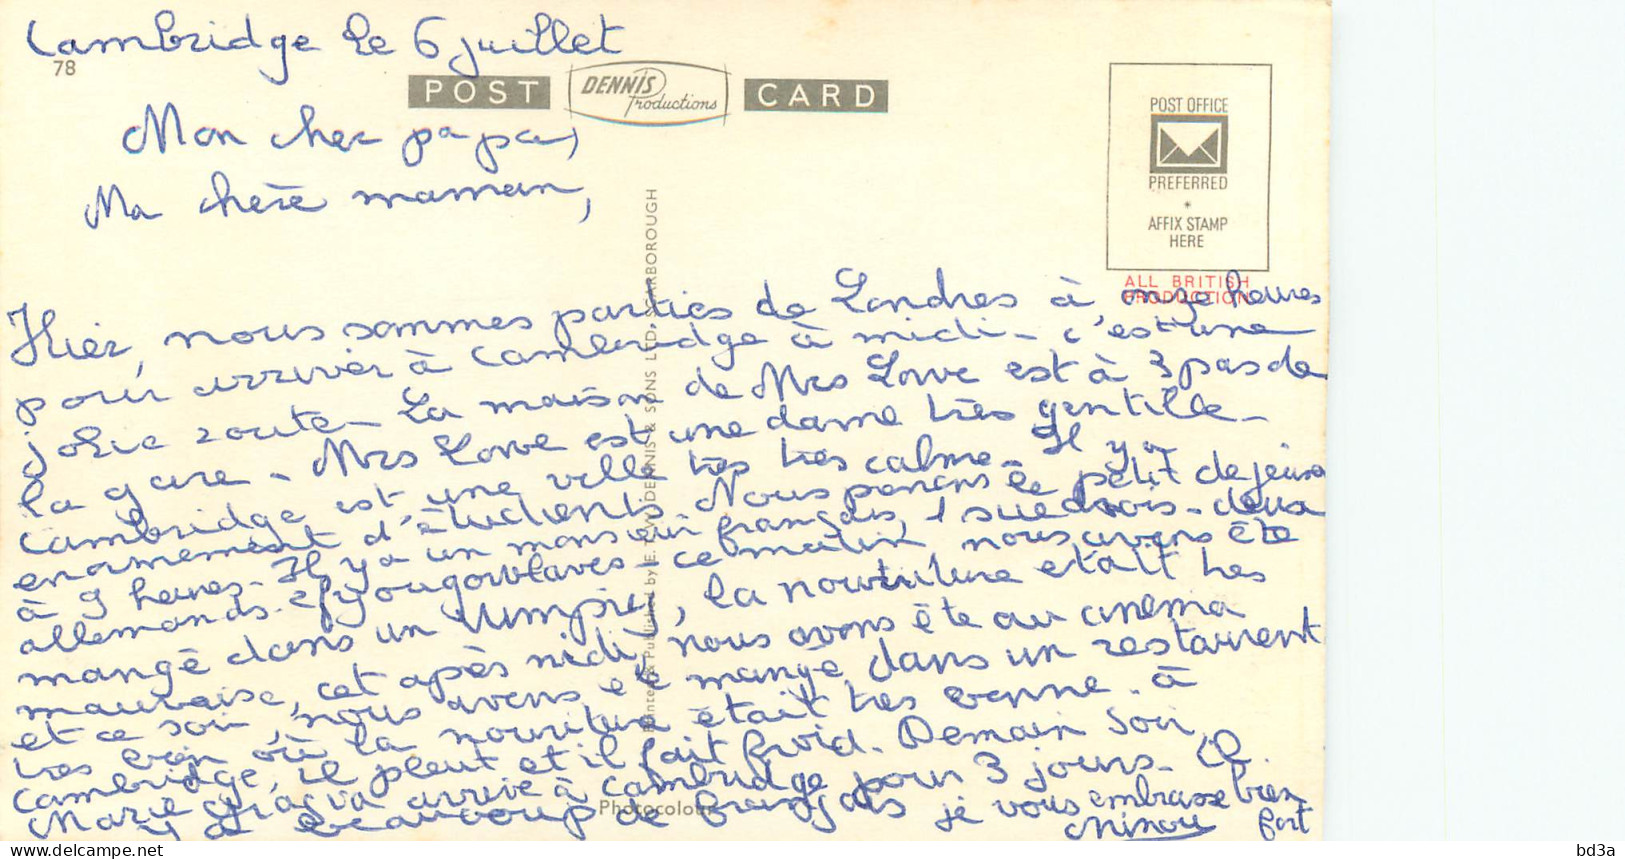 Cambridge le 6 juillet
78
POST DENNIS Productions CARD
POST OFFICE
PREFERRED
*
AFFIX STAMP
HERE
ALL BRITISH
PRODUCTION
Mon cher papa,
Ma chère maman,
Hier, nous sommes parties de Londres à onze heures
pour arriver à Cambridge à midi - c'est une
jolie route - La maison de Mrs Lowe est à 3 pas de
la gare - Mrs Lowe est une dame très gentille -
Cambridge est une ville très très calme - Il y a
enormement d'étudients Nous penons le petit dejeuné
à 9 heures - Il y a un monsieur français, 1 suedois - deux
allemands - et yougowlaves - ce matin, nous avons été
mangé dans un Wimpiey, la nourriture etait tres
mauvaise, cet après midi, nous avons éte au cinema
et ce soir, nous avons eté mangé dans un restaurent
tres bien où la nourriture était tres bonne - à
Cambridge, il pleut et il fait froid. Demain soir,
Marie va arrivé à Cambridge pour 3 jours -
y a beaucoup de français je vous embrasse bien
fort
Printed & Published by E.T.W. DENNIS & SONS LTD. SCARBOROUGH
Photocolour
delcampe.net
bd3a